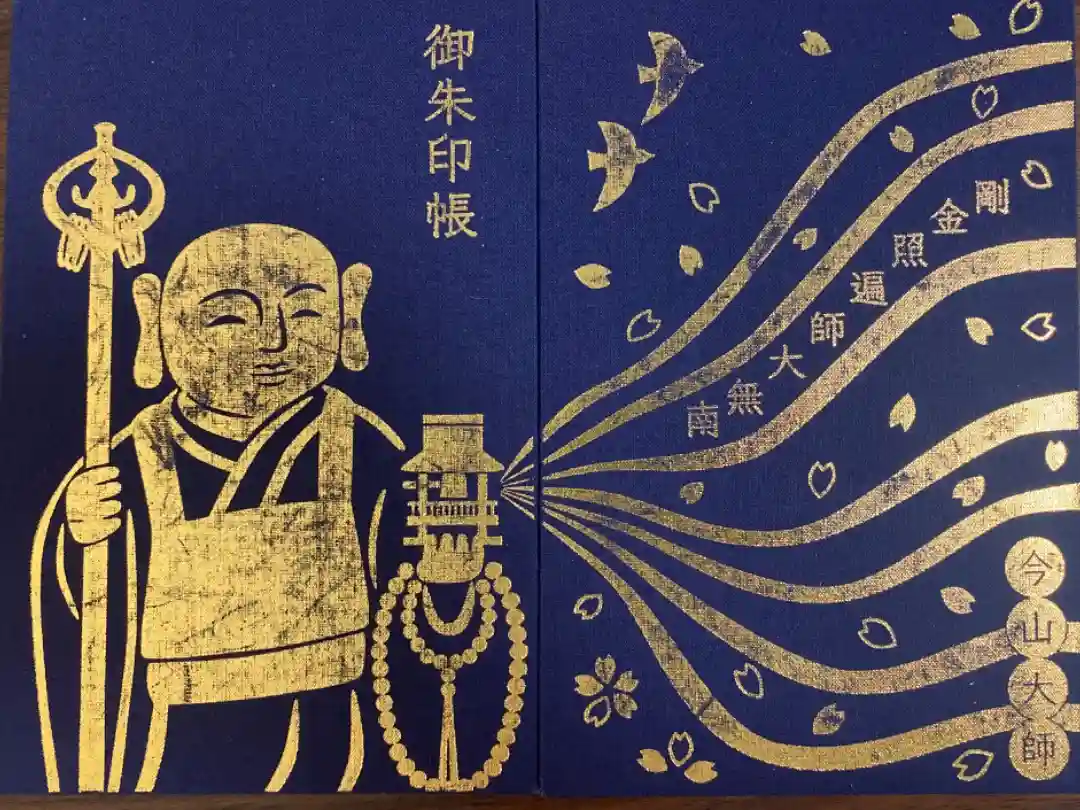 御朱印帳
南無大師遍照金剛
今山大師